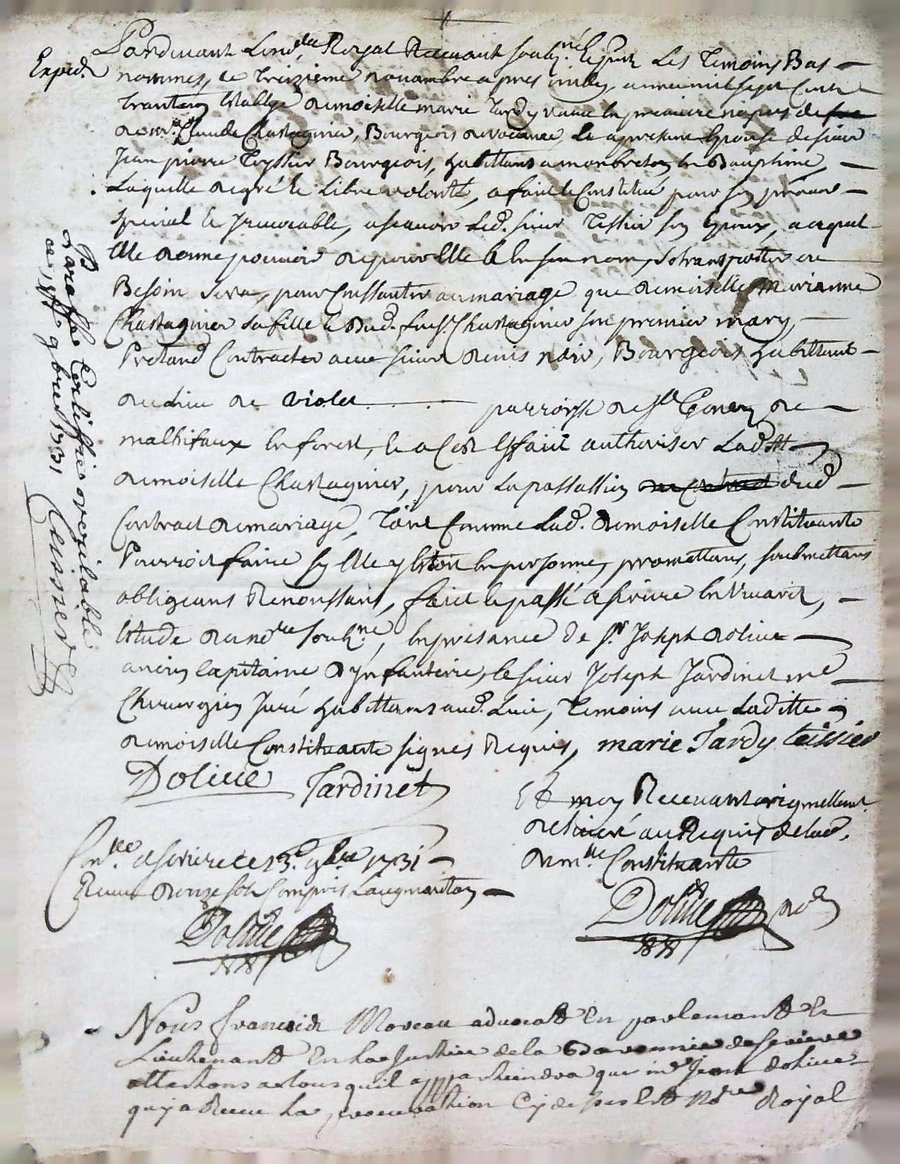 Expedié
Pardevant le no.re Royal Recevant soubz.né & presents Les Temoins Bas
nommes, le Treizieme novambre apres midy, annee mil sept cent
trante un Establye demoiselle marie Tardy vefve en premiere nopces de
de m.re Claude Chastagnier, Bourgeois de vocance, & a presant Epouse de sieur
Jean pierre Teyssier Bourgeois, habittans a monbreton En Dauphiné,
Laquelle de gré & Libre volonté, a fait & Constitué pour son procureur
special & Irrevocable, a scavoir Led. sieur Tessier son Epoux, auquel
Elle donne pouvoir de pour Elle & En son nom, se transporter ou
Besoin sera, pour Consantir au mariage que demoiselle Marianne
Chastagnier sa fille & dud. feu s.r Chastagnier son premier mary,
Pretand Contracter avec sieur denis noir, Bourgeois habittant
du lieu de violet parroisse de S.t Genest de
malhifaux En forest, & a Cet Effait authoriser Laditte
demoiselle Chastagnier, pour La passassion dud.
Contract de mariage, Tout Comme Lad. demoiselle Constituante
Pourroit faire sy Elle y Estoit En personne, promettans, soubmettans
obligeans Renonssans, fait & passé a serriere En vivarés,
Etude de no.re soubz.né, En presance de s.r Joseph dolive
ancien Capitaine d'Infanterie, & sieur Joseph Jardinet m.e
Chirurgien Juré habittans aud. Lieu, Temoins avec Laditte
demoiselle Constituante signes Requis, marie Tardy teissier
Dolive Jardinet
Et moy Recevant originellement
delivré au Requis de lad.
dem.lle Constituante
Dolive
Con.rlee a serriere ce 13.e 9bre 1731
Receu douze sols Compris Laugmantaon
Dolive
Paraffe Certiffié veritable
ce 9bre 1731
Nous francois Moreau advocatt En parlemantt &
Lieutenantt En La Justice de la Baronnie de serriere
attestons a tous quil appartiendra que m.e Jean dolive
quy a Receu La procuration Cy dessus Est No.re Royal